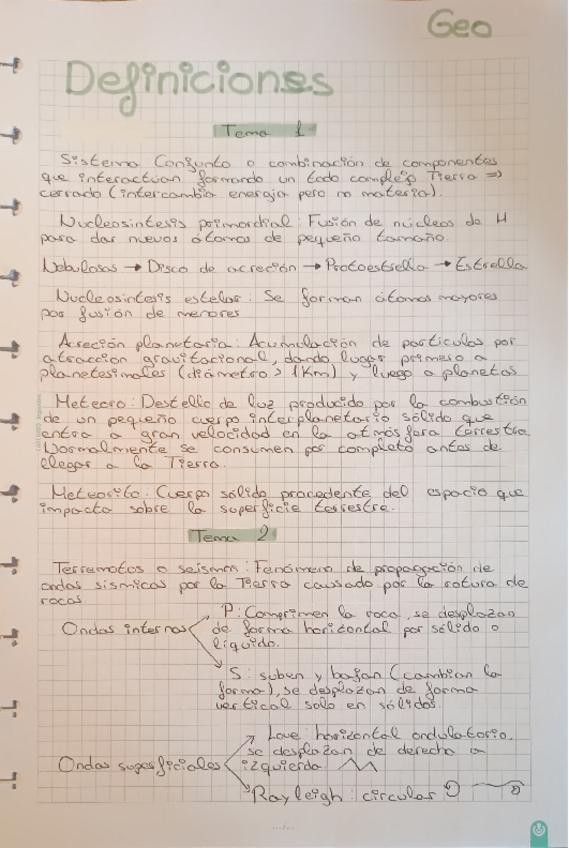 Geo
Definiciones
Tema 1
Sistema Conjunto o combinación de componentes
que interactúan formando un todo complejo Tierra =>
cerrado (intercambia energía pero no materia).
Nucleosíntesis primordial: Fusión de núcleos de H
para dar nuevos átomos de pequeño tamaño.
Nebulosas → Disco de acreción → Protoestrella → Estrella
Nucleosíntesis estelar: Se forman átomos mayores
por fusión de menores
Acreción planetaria: Acumulación de partículas por
atracción gravitacional, dando lugar primero a
planetesimales (diámetro > 1Km) y luego a planetas
Meteoro: Destello de luz producido por la combustión
de un pequeño cuerpo interplanetario sólido que
entra a gran velocidad en la atmósfera terrestre.
Normalmente se consumen por completo antes de
llegar a la Tierra.
Meteorito: Cuerpo sólido procedente del espacio que
impacta sobre la superficie terrestre.
Tema 2
Terremotos o seísmos: Fenómeno de propagación de
ondas sísmicas por la Tierra causado por la rotura de
rocas
P: Comprimen la roca, se desplazan
Ondas internas de forma horizontal por sólido o
líquido.
S: suben y bajan (cambian la
forma), se desplazan de forma
vertical solo en sólidos.
Love: horizontal ondulatorio,
se desplazan de derecha a
Ondas superficiales izquierda.
Rayleigh: circular